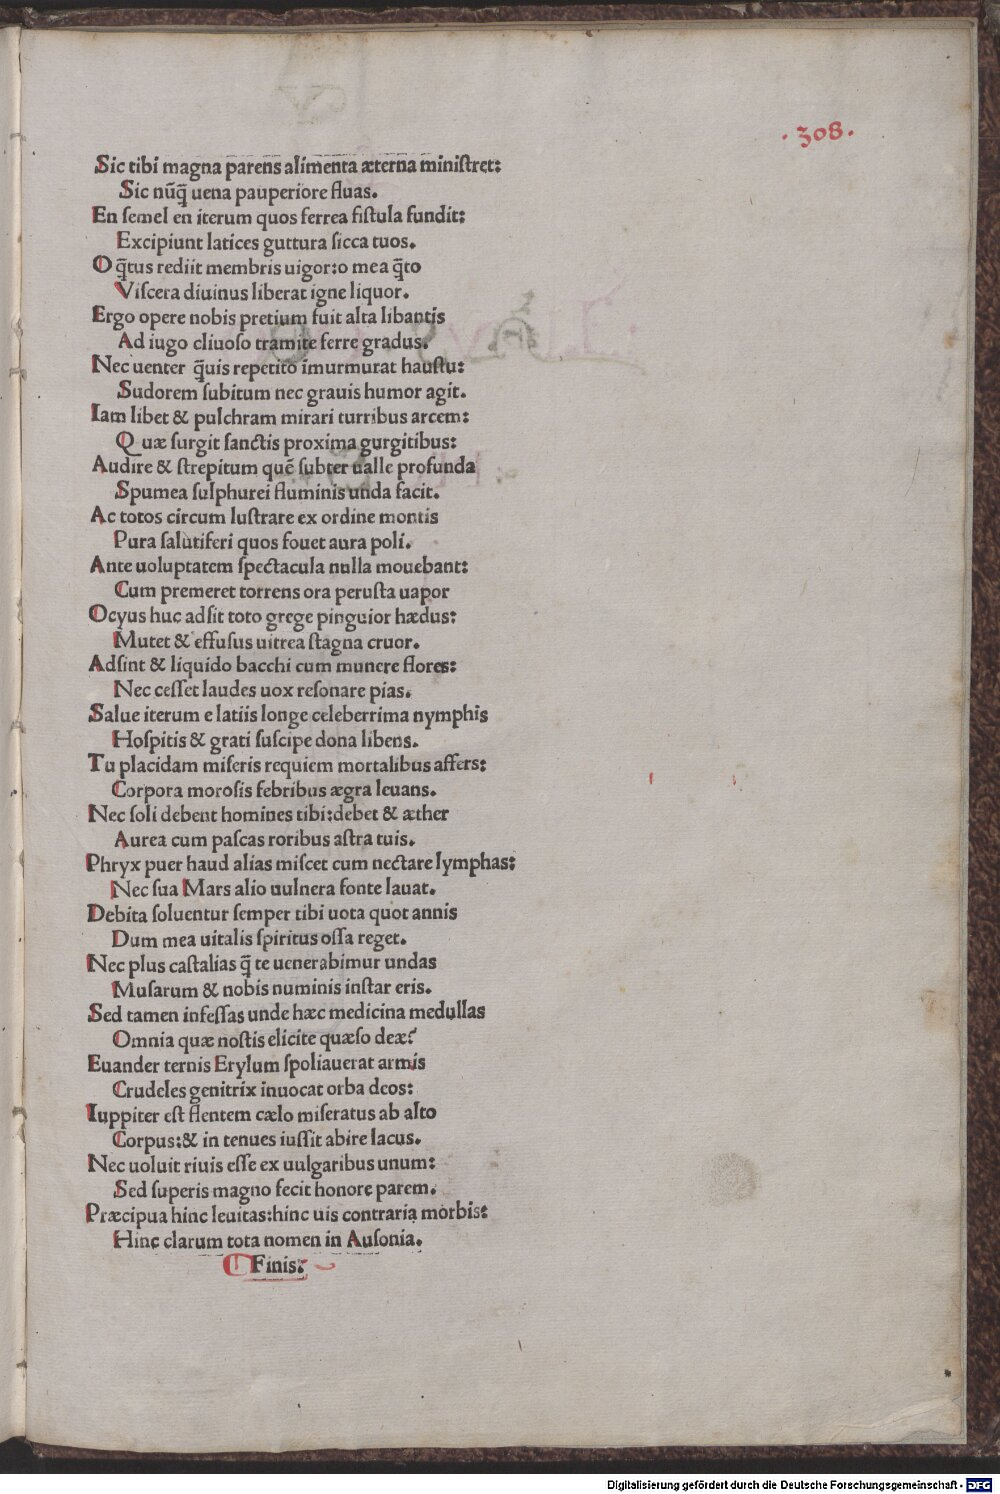 · 308 ·
Sic tibi magna parens alimenta æterna miniſtret:
Sic nūq̄ uena pauperiore fluas.
En ſemel en iterum quos ferrea fiſtula fundit:
Excipiunt latices guttura ſicca tuos.
O q̄tus rediit membris uigor:o mea q̄to
Viſcera diuinus liberat igne liquor.
Ergo opere nobis pretium fuit alta libantis
Ad iugo cliuoſo tramite ferre gradus.
Nec uenter q̄uis repetito īmurmurat hauſtu:
Sudorem ſubitum nec grauis humor agit.
Iam libet & pulchram mirari turribus arcem:
Quæ ſurgit ſanctis proxima gurgitibus:
Audire & ſtrepitum quē ſubter ualle profunda
Spumea ſulphurei fluminis unda facit.
Ac totos circum luſtrare ex ordine montis
Pura ſalutiferi quos fouet aura poli.
Ante uoluptatem ſpectacula nulla mouebant:
Cum premeret torrens ora peruſta uapor
Ocyus huc adſit toto grege pinguior hædus:
Mutet & effuſus uitrea ſtagna cruor.
Adſint & liquido bacchi cum munere flores:
Nec ceſſet laudes uox reſonare pias.
Salue iterum e latiis longe celeberrima nymphis
Hoſpitis & grati ſuſcipe dona libens.
Tu placidam miſeris requiem mortalibus affers:
Corpora moroſis febribus ægra leuans.
Nec ſoli debent homines tibi:debet & æther
Aurea cum paſcas roribus aſtra tuis.
Phryx puer haud alias miſcet cum nectare lymphas:
Nec ſua Mars alio uulnera fonte lauat.
Debita ſoluentur ſemper tibi uota quot annis
Dum mea uitalis ſpiritus oſſa reget.
Nec plus caſtalias q̄ te uenerabimur undas
Muſarum & nobis numinis inſtar eris.
Sed tamen infeſſas unde hæc medicina medullas
Omnia quæ noſtis elicite quæſo deæ?
Euander ternis Erylum ſpoliauerat armis
Crudeles genitrix inuocat orba deos:
Iuppiter eſt flentem cælo miſeratus ab alto
Corpus:& in tenues iuſſit abire lacus.
Nec uoluit riuis eſſe ex uulgaribus unum:
Sed ſuperis magno fecit honore parem.
Præcipua hinc leuitas:hinc uis contraria morbis:
Hinc clarum tota nomen in Auſonia.
Finis:
Digitalisierung gefördert durch die Deutsche Forschungsgemeinschaft - DFG